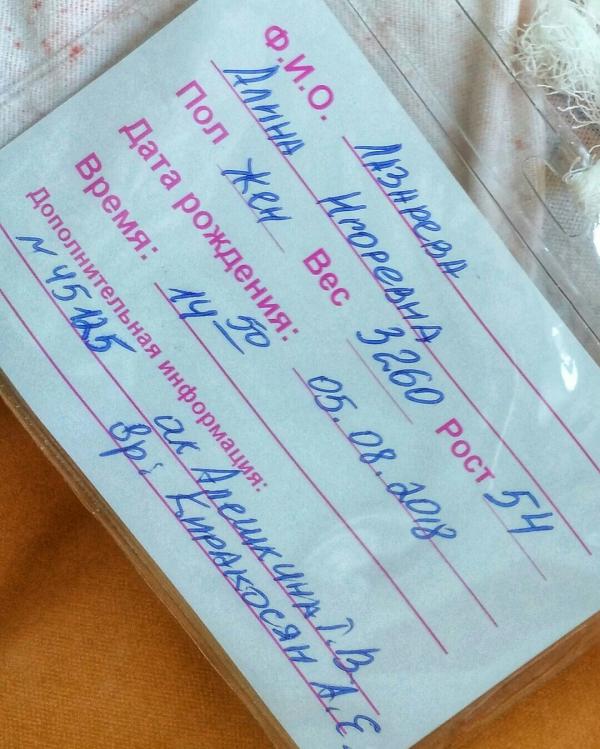 Ф.И.О. Лазарева
Алина Игоревна
Пол Жен Вес 3260 Рост 54
Дата рождения: 05.08.2018
Время: 14 50
Дополнительная информация:
N 45125 ак Алешкина Т.В.
вр: Киракосян А.Е.